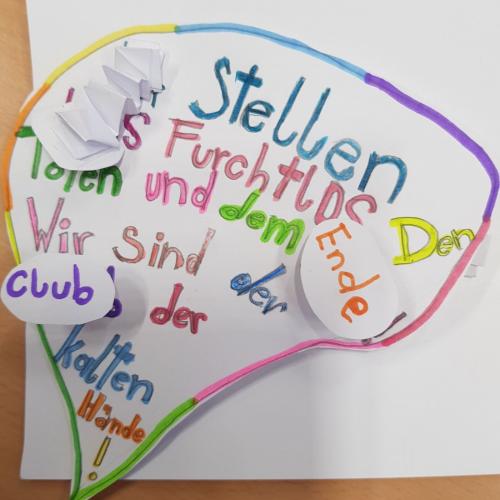 Stellen
Furchtlos Den
Toten und dem Ende
Wir sind der
club der
kalten
Hände!